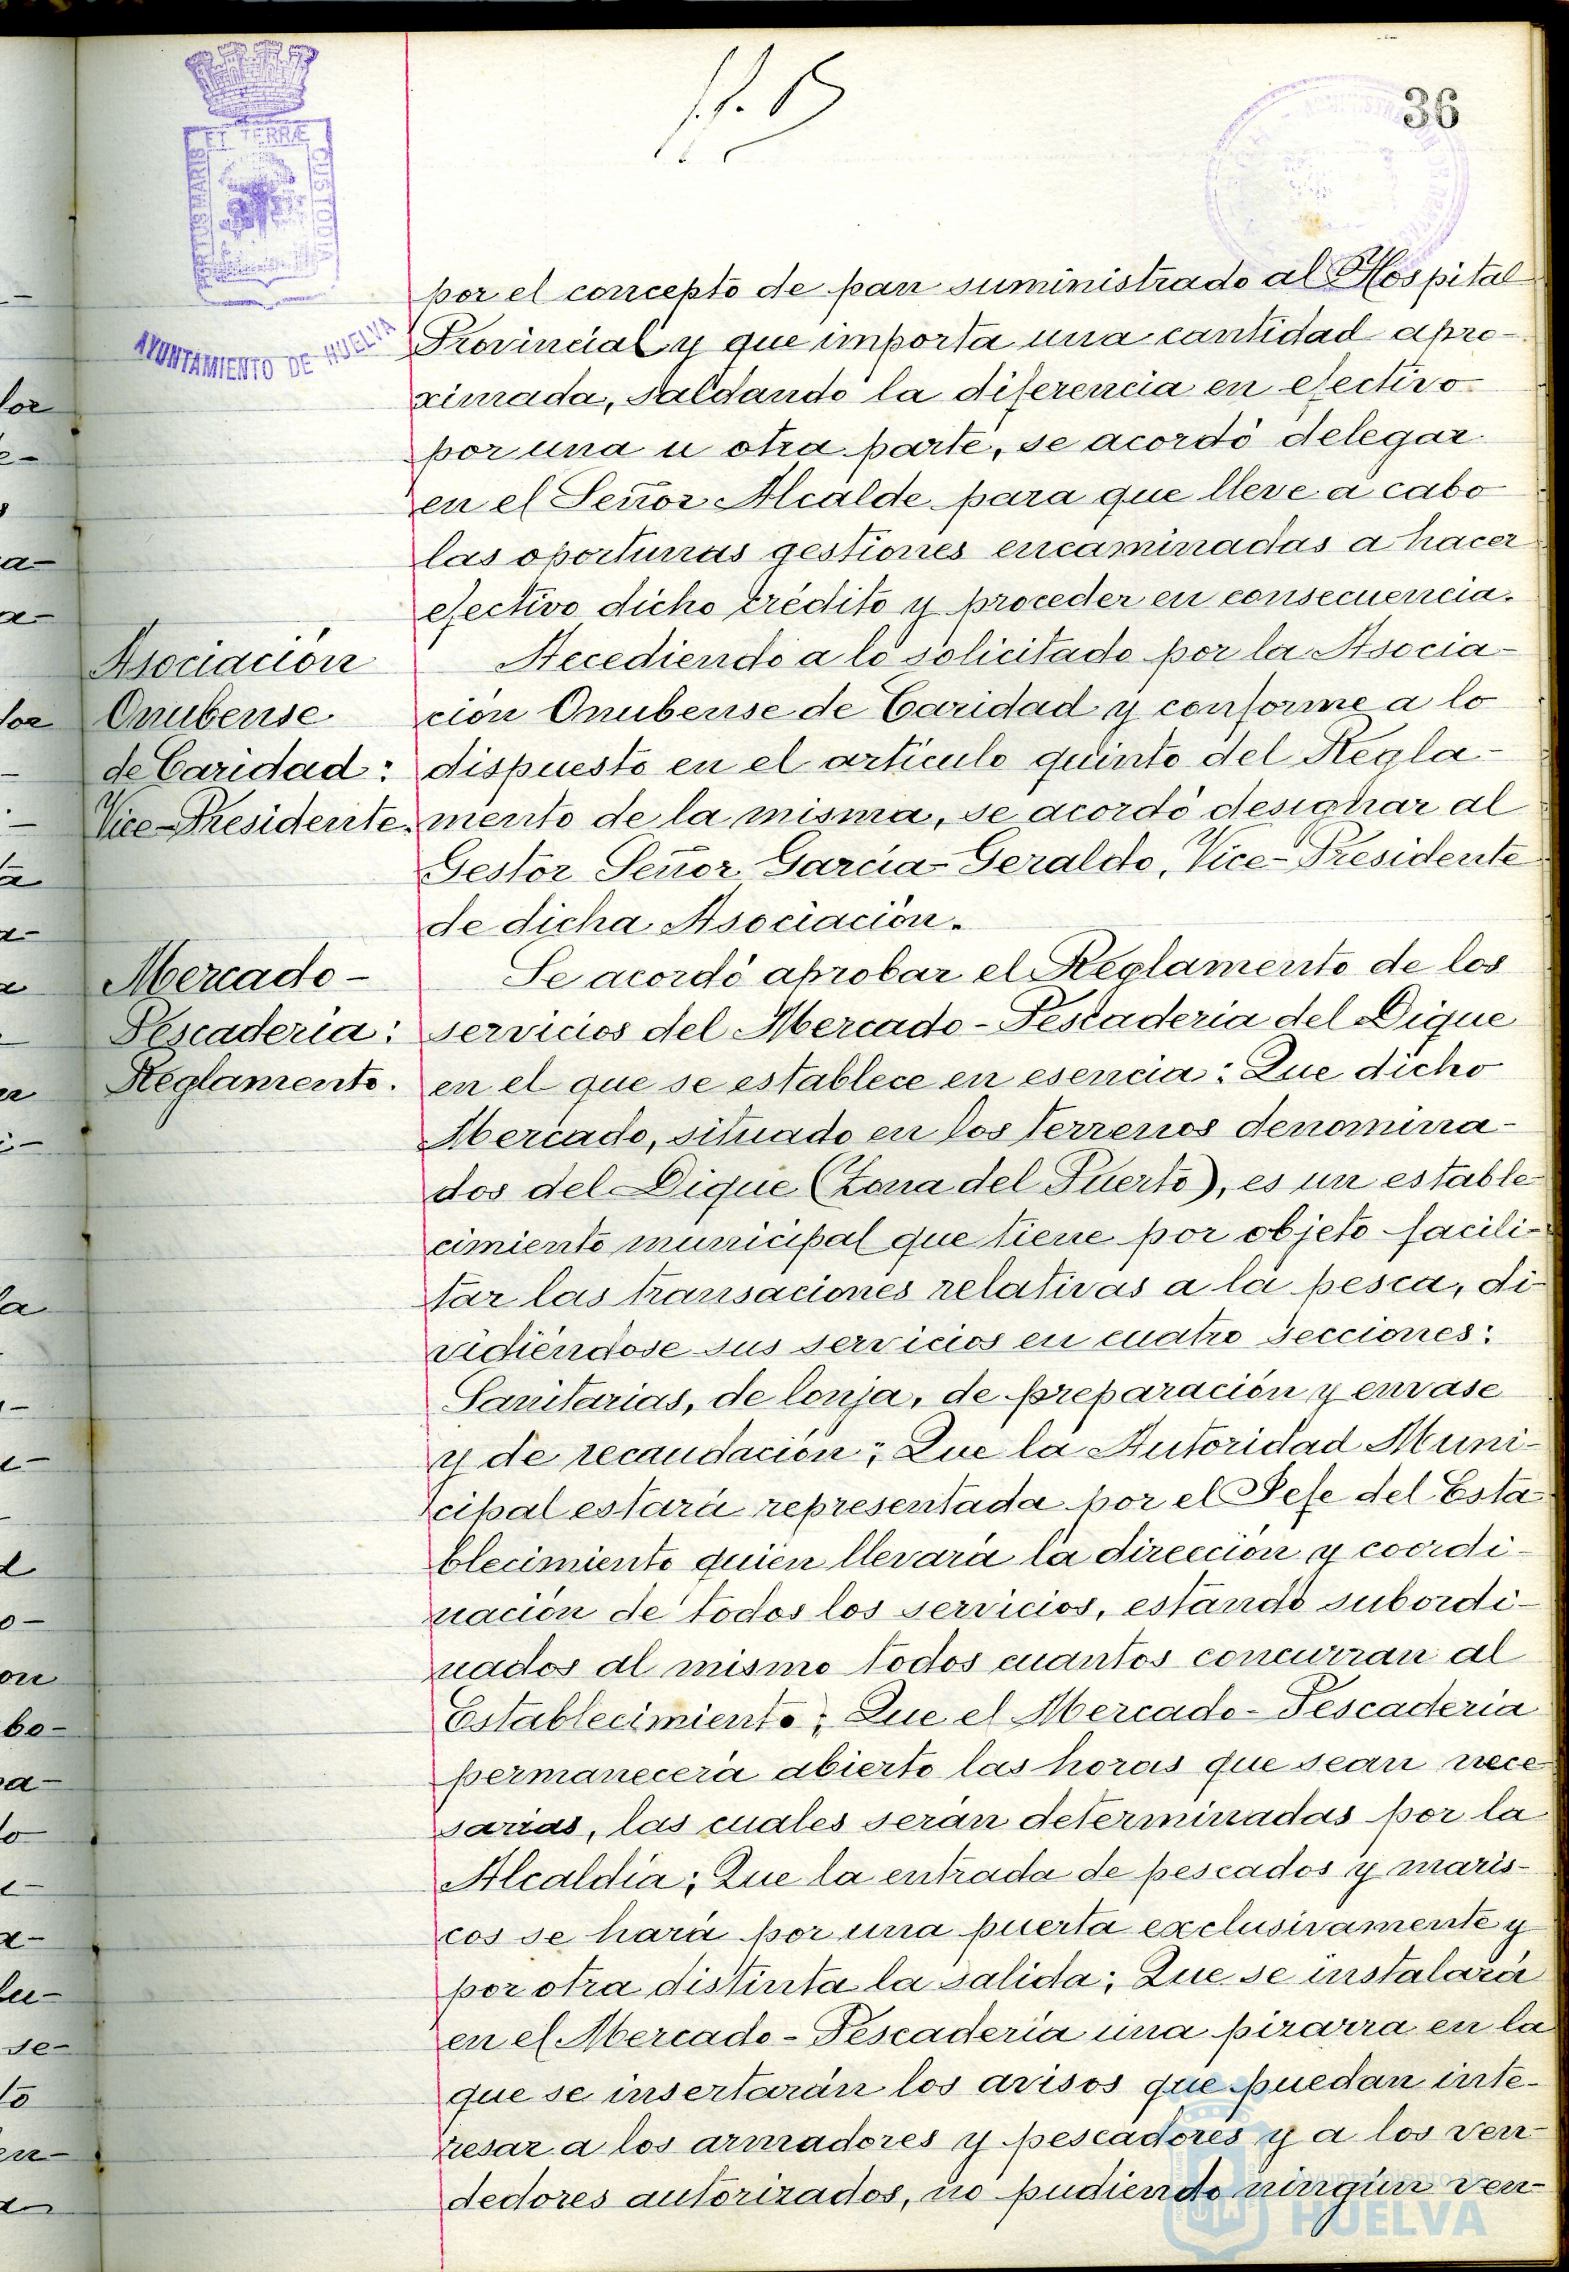 36
PORTUS MARIS ET TERRÆ CUSTODIA
AYUNTAMIENTO DE HUELVA
por el concepto de pan suministrado al Hospital
Provincial y que importa una cantidad apro-
ximada, saldando la diferencia en efectivo
por una u otra parte, se acordó delegar
en el Señor Alcalde para que lleve a cabo
las oportunas gestiones encaminadas a hacer
efectivo dicho crédito y proceder en consecuencia.
Asociación
Onubense
de Caridad:
Vice-Presidente.
Accediendo a lo solicitado por la Asocia-
ción Onubense de Caridad y conforme a lo
dispuesto en el artículo quinto del Regla-
mento de la misma, se acordó designar al
Gestor Señor García Geraldo, Vice-Presidente
de dicha Asociación.
Mercado-
Pescadería:
Reglamento.
Se acordó aprobar el Reglamento de los
servicios del Mercado-Pescadería del Dique
en el que se establece en esencia: Que dicho
Mercado, situado en los terrenos denomina-
dos del Dique (Zona del Puerto), es un estable-
cimiento municipal que tiene por objeto facili-
tar las transaciones relativas a la pesca, di-
vidiéndose sus servicios en cuatro secciones:
Sanitarias, de lonja, de preparación y envase
y de recaudación; Que la Autoridad Muni-
cipal estará representada por el Jefe del Esta-
blecimiento quien llevará la dirección y coordi-
nación de todos los servicios, estando subordi-
nados al mismo todos cuantos concurran al
Establecimiento; Que el Mercado-Pescadería
permanecerá abierto las horas que sean nece-
sarias, las cuales serán determinadas por la
Alcaldía; Que la entrada de pescados y maris-
cos se hará por una puerta exclusivamente y
por otra distinta la salida; Que se instalará
en el Mercado-Pescadería una pizarra en la
que se insertarán los avisos que puedan inte-
resar a los armadores y pescadores y a los ven-
dedores autorizados, no pudiendo ningún ven-
Ayuntamiento de
HUELVA